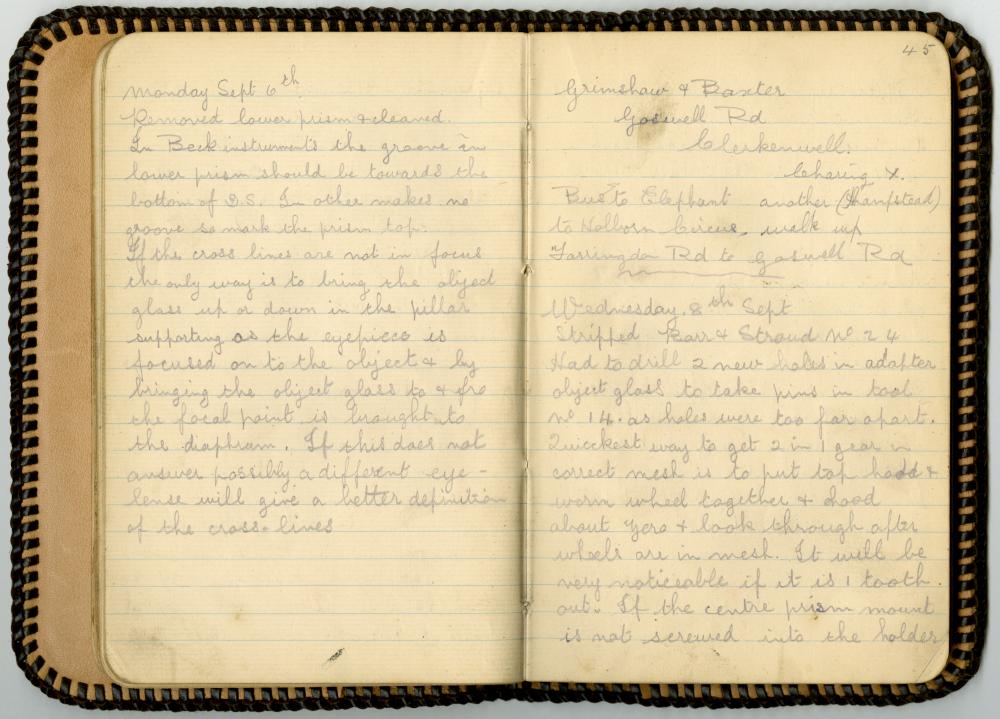 Monday Sept 6th
Removed lower prism & cleaned.
In Beck instruments the groove in
lower prism should be towards the
bottom of D.S. In other makes no
groove so mark the prism top.
If the cross lines are not in focus
the only way is to bring the object
glass up or down in the pillar
supporting as the eyepiece is
focused on to the object & by
bringing the object glass to & fro
the focal point is brought to
the diaphram. If this does not
answer possibly a different eye-
lense will give a better definition
of the cross-lines
45
Grimshaw & Baxter
Goswell Rd
Clerkenwell.
Charing X.
Bus to Elephant another (Hampstead)
to Holborn Circus, walk up
Farringdon Rd to Goswell Rd
Wednesday. 8th Sept
Stripped Barr & Stroud No 24
Had to drill 2 new holes in adapter
object glass to take pins in tool
no 14. as holes were too far apart.
Quicckest way to get 2 in 1 gear in
correct mesh is to put top head &
worm wheel together &
about zero & look through after
wheels are in mesh. It will be
very noticeable if it is 1 tooth
out. If the centre prism mount
is not screwed into the holder